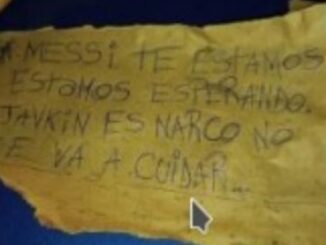 A MESSI TE ESTAMOS
ESTAMOS ESPERANDO.
JAVKIN ES NARCO NO
TE VA A CUIDAR...